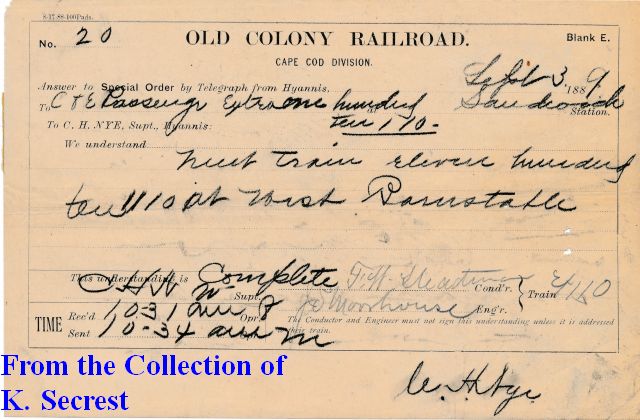 8-17-88-100 Pads.
No. 20 OLD COLONY RAILROAD. Blank E.
CAPE COD DIVISION.
Sept 3 1889
Answer to Special Order by Telegraph from Hyannis.
To C & E Passenger Extra one hundred at Sandwich Station.
To C. H. NYE, Supt., Hyannis: ten 110.
We understand
Meet train eleven hundred
ten 1110 at West Barnstable
This understanding is Complete Cond'r. Train
C H N Supt. Moorhouse Eng'r.
TIME Rec'd 10-31 Opr
Sent 10-34
The Conductor and Engineer must not sign this understanding unless it is addressed
their train.
C. H. Nye
From the Collection of
K. Secrest